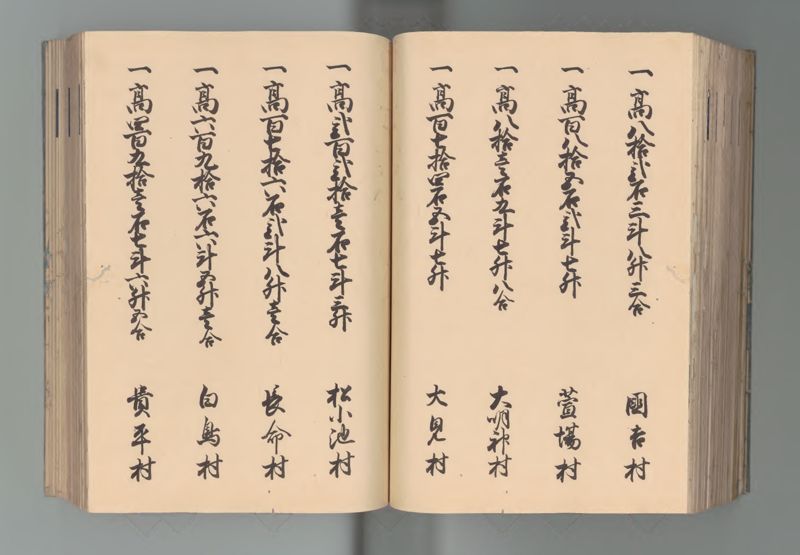 一高八拾弐石三斗八舛三合 國吉村
一高百八拾五石弐斗七舛 萱場村
一高八拾壱石九斗七舛八合 大明神村
一高百七拾四石五斗七舛 大見村
一高弐百弐拾壱石七斗三舛 松小池村
一高百七拾六石弐斗八舛壱合 長命村
一高六百九拾六石六斗五舛壱合 白鳥村
一高四百九拾壱石七斗六舛五合 貴平村